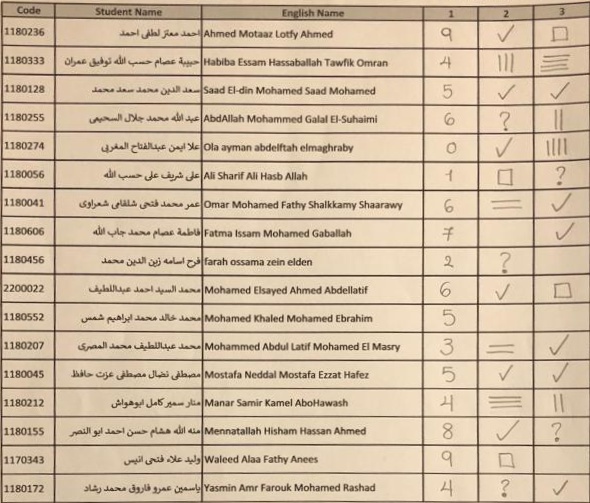 Code Student Name English Name 1 2 3
1180236 احمد معتز لطفى احمد Ahmed Motaaz Lotfy Ahmed 9 ✓ □
1180333 حبيبة عصام حسب الله توفيق عمران Habiba Essam Hassaballah Tawfik Omran 4 ||| ☰
1180128 سعد الدين محمد سعد محمد Saad El-din Mohamed Saad Mohamed 5 ✓ ✓
1180255 عبد الله محمد جلال السحيمى AbdAllah Mohammed Galal El-Suhaimi 6 ? ||
1180274 علا ايمن عبدالفتاح المغربى Ola ayman abdelftah elmaghraby 0 ✓ ||||
1180056 على شريف على حسب الله Ali Sharif Ali Hasb Allah 1 □ ?
1180041 عمر محمد فتحى شلقامى شعراوى Omar Mohamed Fathy Shalkkamy Shaarawy 6 = ✓
1180606 فاطمة عصام محمد جاب الله Fatma Issam Mohamed Gaballah 7 ✓
1180456 فرح اسامه زين الدين محمد farah ossama zein elden 2 ?
2200022 محمد السيد احمد عبداللطيف Mohamed Elsayed Ahmed Abdellatif 6 ✓ □
1180552 محمد خالد محمد ابراهيم شمس Mohamed Khaled Mohamed Ebrahim 5
1180207 محمد عبداللطيف محمد المصرى Mohammed Abdul Latif Mohamed El Masry 3 = ✓
1180045 مصطفى نضال مصطفى عزت حافظ Mostafa Neddal Mostafa Ezzat Hafez 5 ✓ ✓
1180212 منار سمير كامل ابوهواش Manar Samir Kamel AboHawash 4 ≡ ||
1180155 منه الله هشام حسن احمد ابو النصر Mennatallah Hisham Hassan Ahmed 8 ✓ ?
1170343 وليد علاء فتحى انيس Waleed Alaa Fathy Anees 9 □
1180172 ياسمين عمرو فاروق محمد رشاد Yasmin Amr Farouk Mohamed Rashad 4 ? ✓